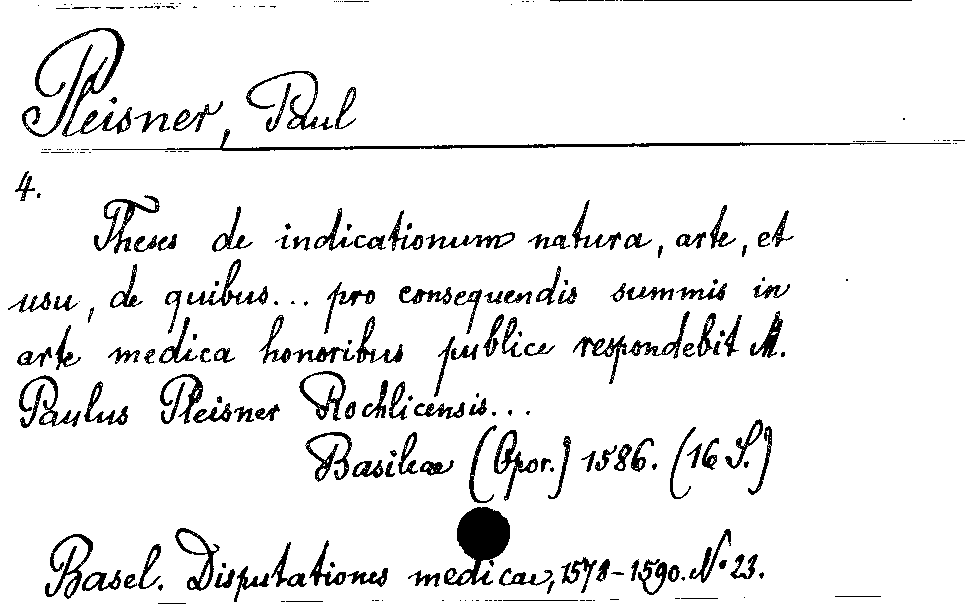 Pleisner, Paul
4.
Theses de indicationum natura, arte, et
usu, de quibus... pro consequendis summis in
arte medica honoribus publice respondebit M.
Paulus Pleisner Rochlicensis...
Basileae (Opor.) 1586. (16 S.)
Basel. Disputationes medicae, 1578-1590. No 23.